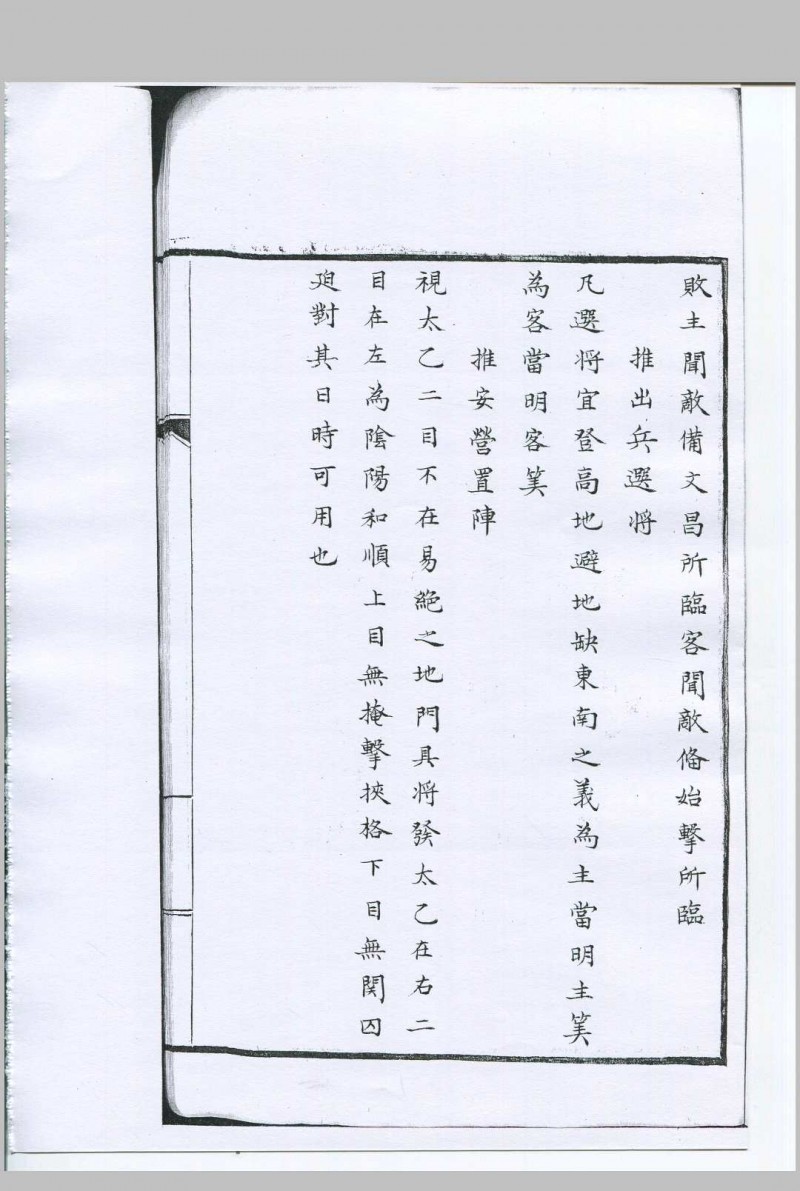 敗主聞敵備文昌所臨客聞敵俻始擊所臨
推出兵選將
凡選将宜登高地避地缺東南之義為主當明主筭
為客當明客筭
推安營置陣
視太乙二目不在易絕之地門具将發太乙在右二
目在左為陰陽和順上目無掩擊挾格下目無関囚
廹對其日時可用也